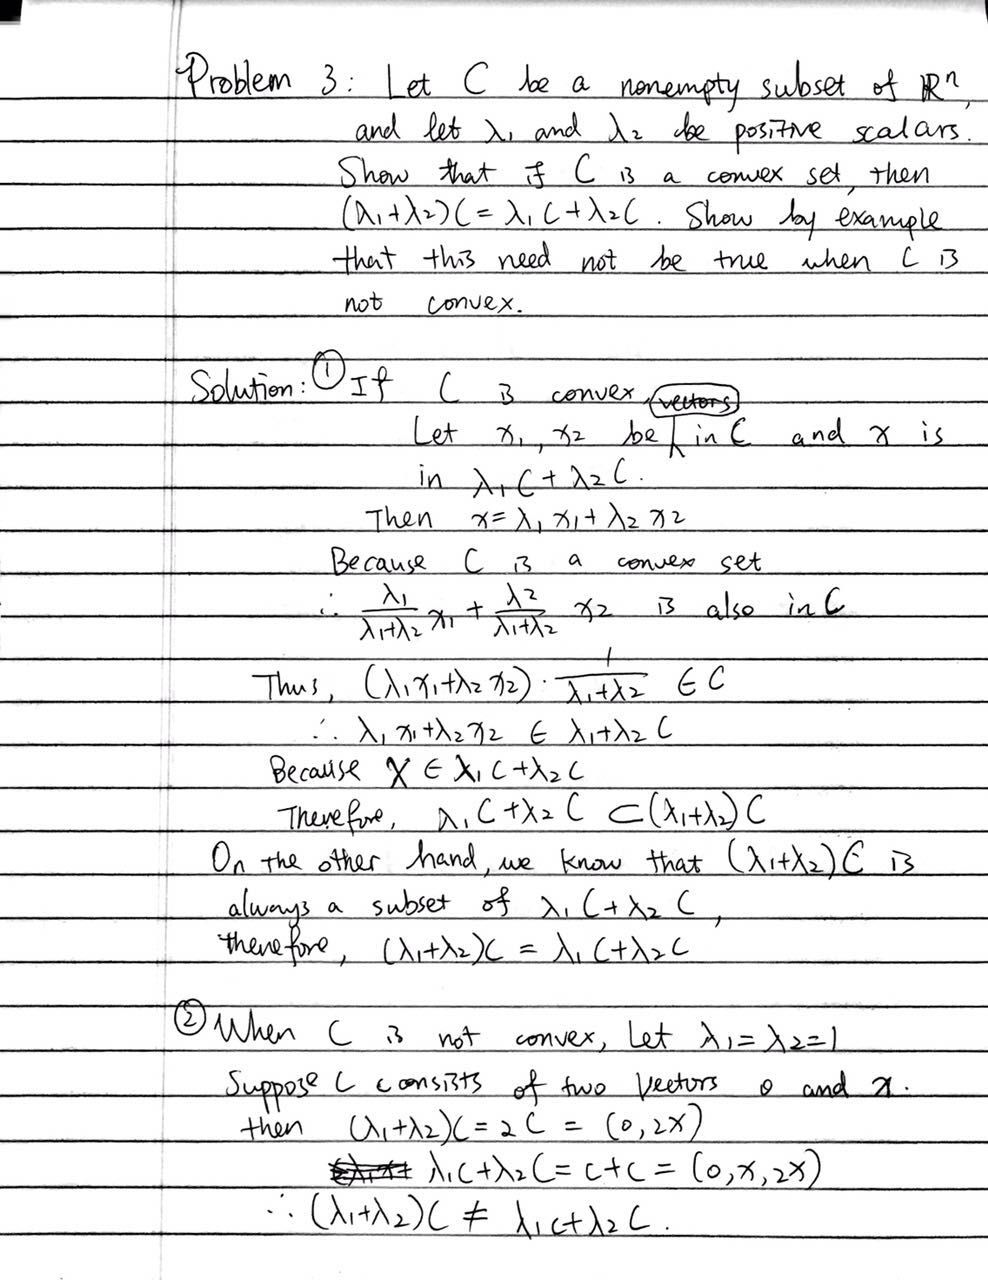 Problem 3: Let C be a nonempty subset of ℝⁿ,
and let λ₁ and λ₂ be positive scalars.
Show that if C is a convex set, then
(λ₁+λ₂)C = λ₁C+λ₂C. Show by example
that this need not be true when C is
not convex.
Solution: ① If C is convex, vectors
Let x₁, x₂ be in C and x is
in λ₁C + λ₂C.
Then x = λ₁x₁ + λ₂x₂
Because C is a convex set
∴ λ₁/(λ₁+λ₂) x₁ + λ₂/(λ₁+λ₂) x₂ is also in C
Thus, (λ₁x₁+λ₂x₂) · 1/(λ₁+λ₂) ∈ C
∴ λ₁x₁+λ₂x₂ ∈ λ₁+λ₂ C
Because X ∈ λ₁C+λ₂C
Therefore, λ₁C+λ₂C ⊂ (λ₁+λ₂)C
On the other hand, we know that (λ₁+λ₂)C is
always a subset of λ₁C+λ₂C,
therefore, (λ₁+λ₂)C = λ₁C+λ₂C
② When C is not convex, Let λ₁=λ₂=1
Suppose C consists of two vectors 0 and x.
then (λ₁+λ₂)C = 2C = (0,2x)
λ₁C+λ₂C = C+C = (0,x,2x)
∴ (λ₁+λ₂)C ≠ λ₁C+λ₂C.